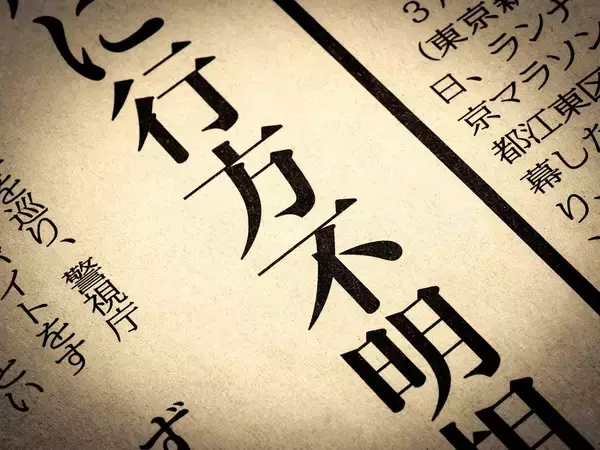 3
(東京新
日、ランナ
京マラソン
都江東区
幕した
り、
に行方不明
ず
を巡り、警視庁
イトをす
とい